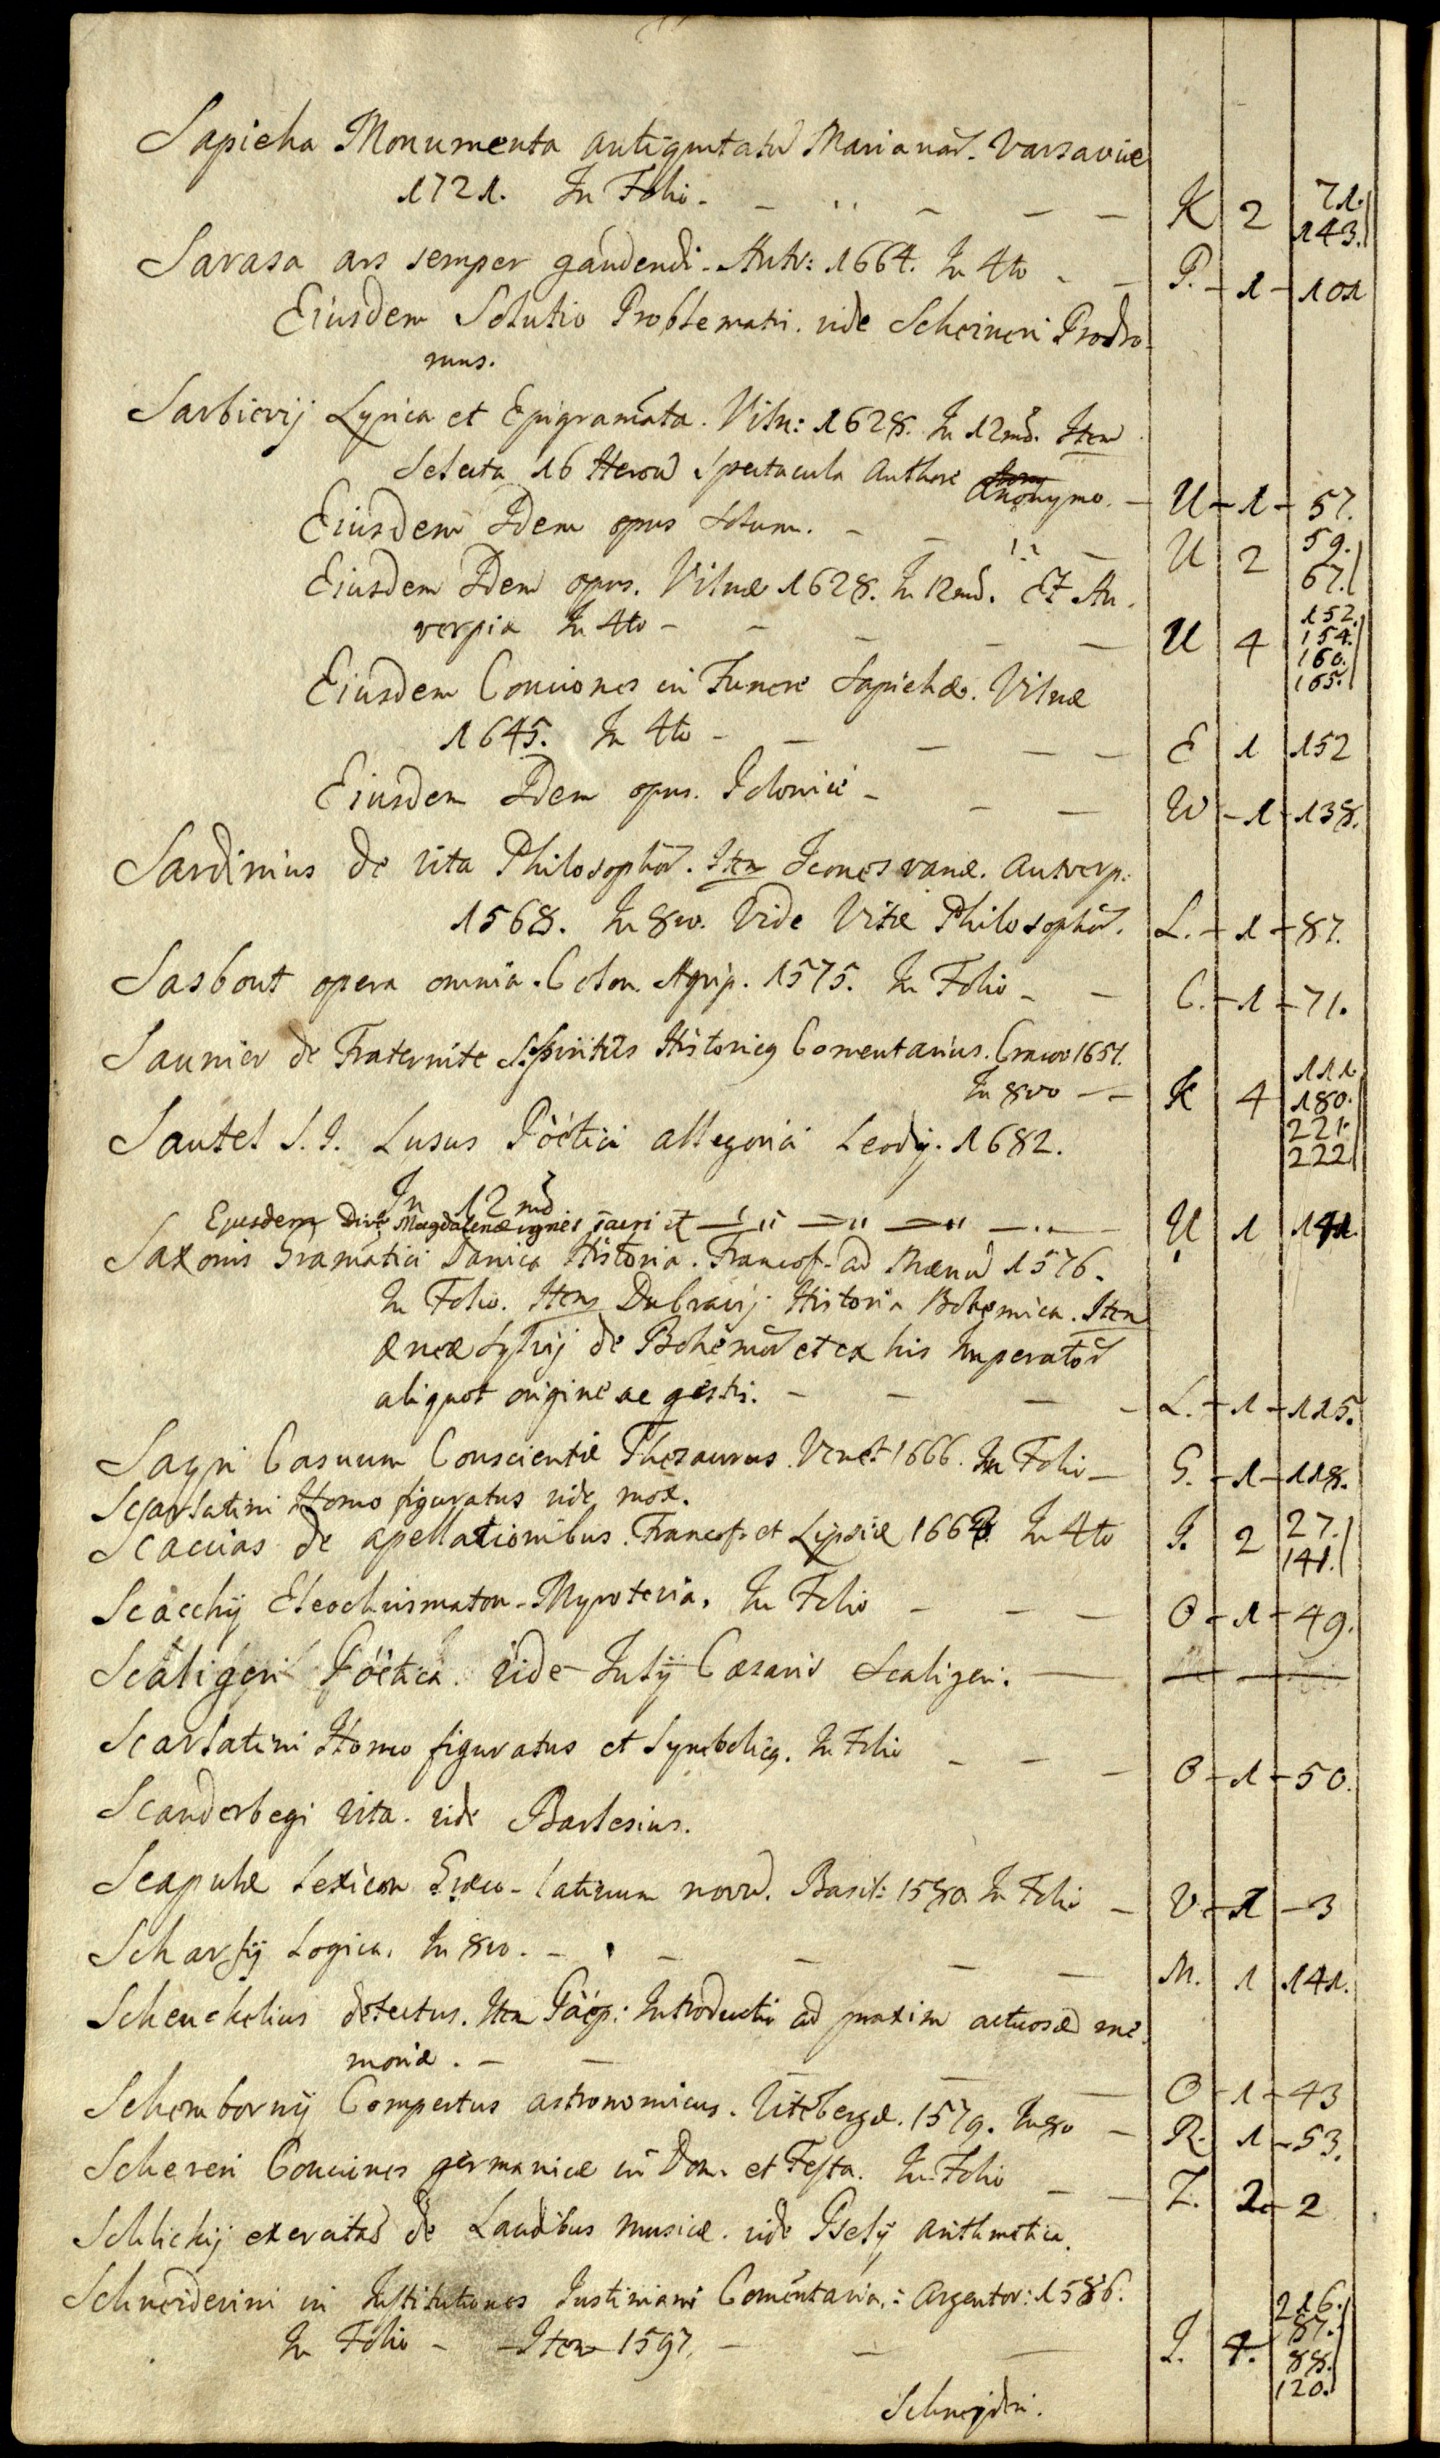 Sapieha Monumenta antiquitatū Marianar̄. Varsaviæ
1721. In Folio. K 2 71. 143.
Sarasa ars semper gaudendi. Antv: 1664. In 4to P. 1 101
Eiusdem Solutio Problematis. vide Scheineri Prodro-
mus.
Sarbievij Lyrica et Epigramāta. Viln: 1628. In 12mō. Item
Selecta 16 Heroū Spectacula Authore Anonymo. U 1 57.
Eiusdem Idem opus totum. U 2 59. 67.
Eiusdem Idem opus. Vilnæ 1628. In 12mō. Et An-
verpia In 4to U 4 152. 154. 160. 165.
Eiusdem Conciones in Funere Sapiehæ. Vilnæ
1645. In 4to E 1 152
Eiusdem Idem opus. Polonicè W 1 138.
Sardinius de vita Philosophor̄. Item Icones variæ. Antverp:
1568. In 8vo. Vide Vitæ Philosophor̄. L. 1 87.
Sasbout opera omnia. Colon. Agrip. 1575. In Folio C. 1 71.
Saunier de Fraternite S. Spiritûs Historicq Comentarius. Cracov 1651.
In 8vo K 4 111. 180. 221. 222
Sautel S. I. Lusus Pöetici allegorici Leodij. 1682.
In 12mō
Ejusdem Divæ Magdalenæ ignes sacri et U 1 141.
Saxonis Gramatici Danica Historia. Francof. ad Mænū 1576.
In Folio. Item Dubravij Historia Bohemica. Item
Æneæ Sylvij de Bohemor̄ et ex his Imperator̄
aliquot origine ac gestis. L. 1 115.
Sayri Casuum Conscientiæ Thesaurus. Venet: 1666. In Folio G. 1 118.
Scarlatini Homo figuratus vide mox.
Scaccias de apellationibus. Francof. et Lipsiæ 166 In 4to I. 2 27. 141.
Scacchij Eleochrismaton-Myrotecia. In Folio O 1 49.
Scaligeri Pöetica. vide Julij Cæsaris Scaligeri.
Scarlatini Homo figuratus et Symbolicq. In Folio O 1 50.
Scanderbegi vita. vide Barlesius.
Scapulæ Lexicon Græco-latinum novū. Basil: 1580. In Folio V. 1 3
Scharfij Logica. In 8vo. M. 1 141.
Schenckelius detectus. Item Päep: Introductio ad praxim actuosæ me-
moriæ. O 1 43
Schembornij Compertus astronomicus. Vitebergæ. 1579. In 8o R. 1 53.
Schereri Conciones germanicæ in Dom. et Festa. In Folio Z. 2 2
Schlichij exercitaō de Laudibus musicæ. vide Pselij arithmetica.
Schneiderini in Institutiones Justiniani Comentaria: Argentor: 1586.
In Folio Item 1597. I. 4. 216. 87. 88. 120.
Schnejderi.